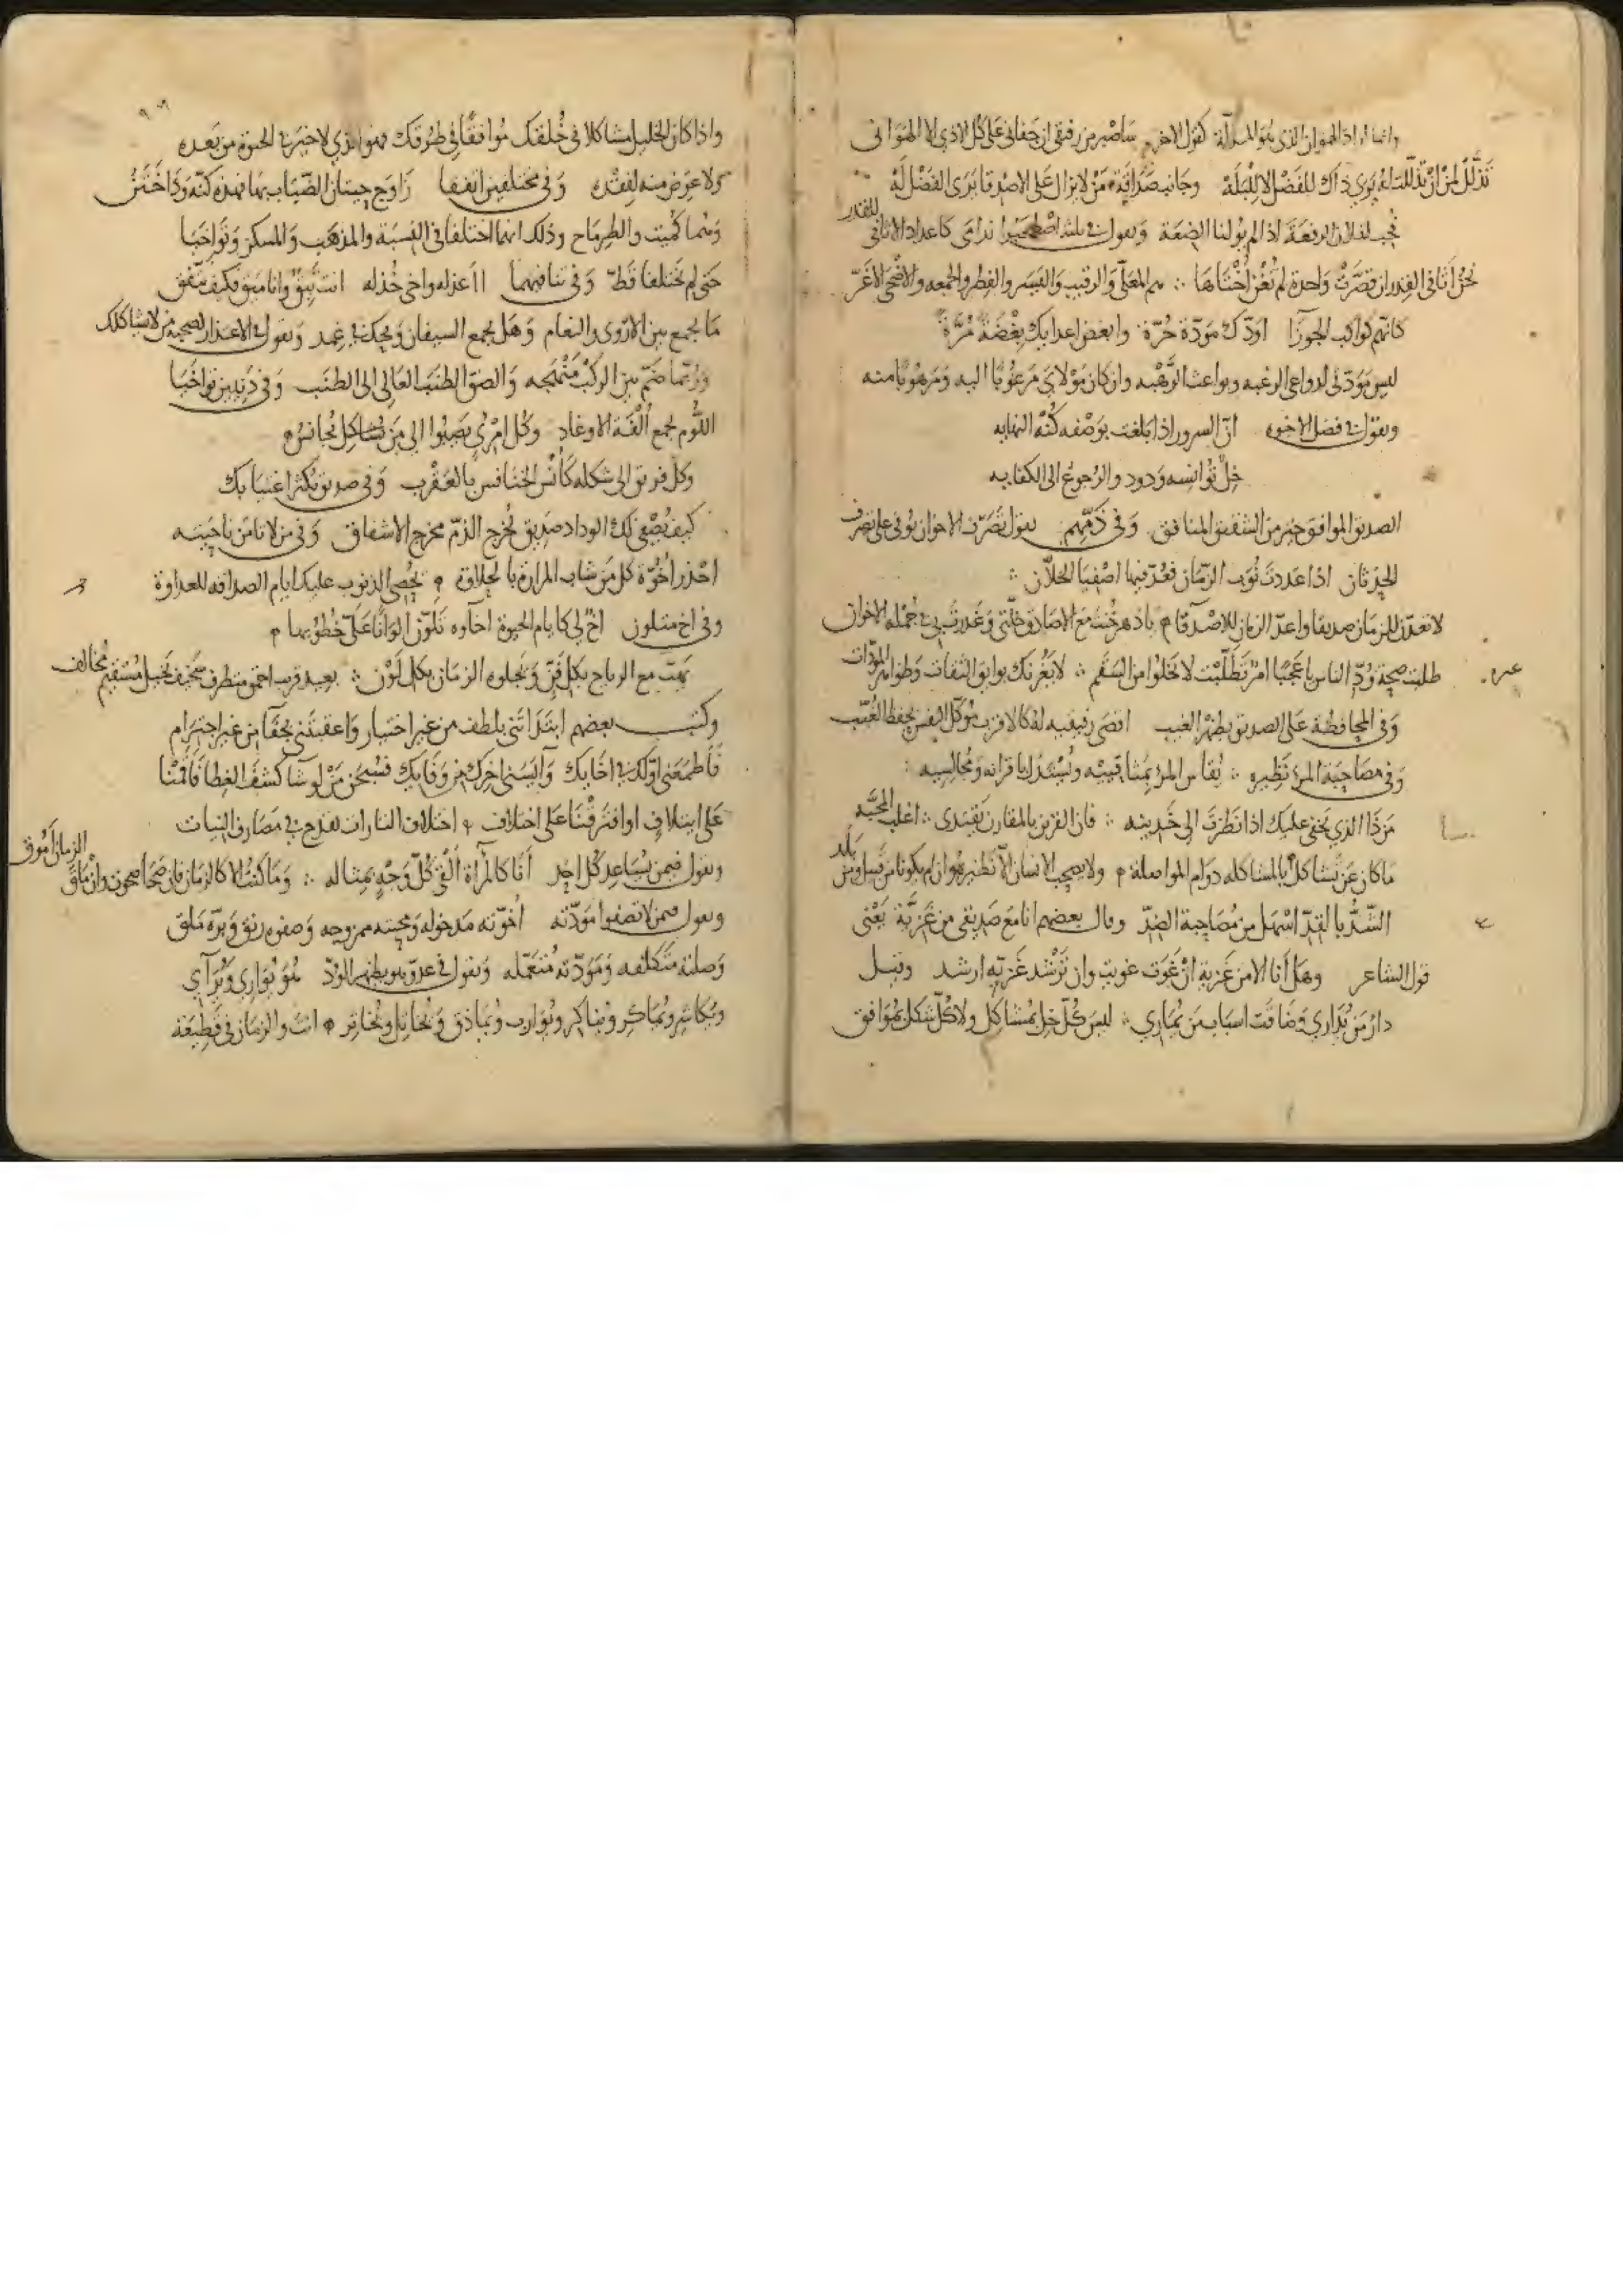 وانما اراد الهوان الذي هو المذلة كقول الاخر سأصبر من رفيقي ان جفاني على كل الاذي الا الهوان
تذلل لمن ان تذللت له يرى ذاك للفضل لا للبله وجانب صداقة من لا يزال على الاصدقا يرى الفضل له
نحب لفلان الرفعة اذا لم يولنا الضعة ويقول في ثلثة اصطحبوا ندامى كاعداد الاثافي للقدر
نحن اثافي القدر ان قصرت واحدة لم تغن اختاها هم المعلى والرقيب والفطر والجمعه والاضحى الاغر
كانهم كواكب الجوزا اودك مودة حرة وابغض اعدايك بغضة مرة
ليس مودتي لدواعي الرغبه وبواعث الرهبه وان كان مولاي مرغوبا اليه ومرهوبا منه
ويقول في فضل الاخوه ان السرور اذا بلغت بوصفه كنه النهايه
خل توانسه ودود والرجوع الى الكفايه
الصديق الموافق خير من الشقيق المنافق وفي ذمهم يقول تصرف الاخوان يوفي على تصرف
الحدثان اذا عددت نوب الزمان فعد فيها اصفيا الخلان
لا تعدن للزمان صديقا واعد الزمان للاصدقا يا دهر خنت مع الاصادق خلتي وغدرت بي في جملة الاخوان
طلبت صحة ود الناس يا عجبا امر تطلبت لا تخلوا من السقم لا يغرنك بوابق الثقات وظواهر المودات
وفي المحافظة على الصديق بظهر الغيب اقصى رفيقيه له كالاقرب موكل النفس بحفظ الغيب
وفي مصاحبة المرء نظيره يقاس المرء بمثاقبيه ويستدل باقرانه ومجالسيه
من ذا الذي يخفى عليك اذا نظرت الى خدينه فان القرين بالمقارن يقتدى اغلب المحبة
ما كان عن تشاكل بالمشاكله دوام المواصلة ولا يصحب الانسان الا نظيره وان لم يكونا من قبيل ومن بلد
الشد بالقد اسهل من مصاحبة الضد وقال بعضهم انا مع صديقي من غزية يعني
قول الشاعر وهل انا الا من غزية ان غوت غويت وان ترشد غزيه ارشد وقيل
دار من يداري وضاقت اسباب من يماري ليس كل خل بمشاكل ولا كل شكل بموافق
واذا كان الخليل مشاكلا في خلقك موافقا في طرقك فهو الذي لا خير في الحيوة من بعده
ولا عوض منه لفقده وفي مختلفين اتفقا زاوج حيتان الضباب بها فهذه كنة وذا ختن
ومنها كميت والطرماح وذلك انهما اختلفا في النسبة والمذهب والمسكن وتواخيا
حتى لم يختلفا قط وفي تنافيهما اعذله واخى خذله انت تئق وانا مئق فكيف نتفق
ما يجمع بين الاروى والنعام وهل يجمع السيفان ويحك في غمد ويقول في الاعتذار لصحبة من لا يشاكلك
وربما ضم بين الركب منهجه والصق الطنب العالي الى الطنب وفي رذيلين تواخيا
اللوم يجمع الفة الاوغاد وكل امرئ يصبوا الى من يشاكل يجانس
وكل قرين الى شكله كانس الخنافس بالعقرب وفي صديق يكثر اغتيابك
كيف يصفي لك الوداد صديق يخرج الذم مخرج الاشفاق وفي من لا تامن ناحيته
احذر اخوة كل من شاب المرارة بالحلاوة يحصى الذنوب عليك ايام الصداقه للعداوة
وفي اخ متلون اخ لي كايام الحيوة اخاوه تلون الوانا على خطوبها
يهب مع الرياح بكل فن ويجلوه الزمان بكل لون بعيد قريب احمق متظرف سخيف نحيل مستقيم مخالف
وكتب بعضهم ابتدأتني بلطف من غير اختيار واعقبتني بجفا من غير اجترام
فاطمعني اولك في اخايك وآيسني اخرك من وفايك فسبحن من لو شا كشف الغطا فاقمنا
على ايتلاف او افترقنا على اختلاف اختلاف النارات تقدح في مصارف النيات
ويقول فيمن يساعد كل احد انا كالمرآة القى كل وجه بمثاله وما كنت الا كالزمان فان صحا صحوت وان ماق الزمان اموق
ويقول فيمن لا تصفوا مودته اخوته مدخوله ومحبته ممزوجه وصفوه رنق وبره ملق
وصلته متكلفه ومودته متعمله ويقول في عدو يظهر الود هو يواري ويرآي
ويكاشر ويماكر ويوارب ويماذق ويخاتل ويخاتر انت والزمان في قطيعة